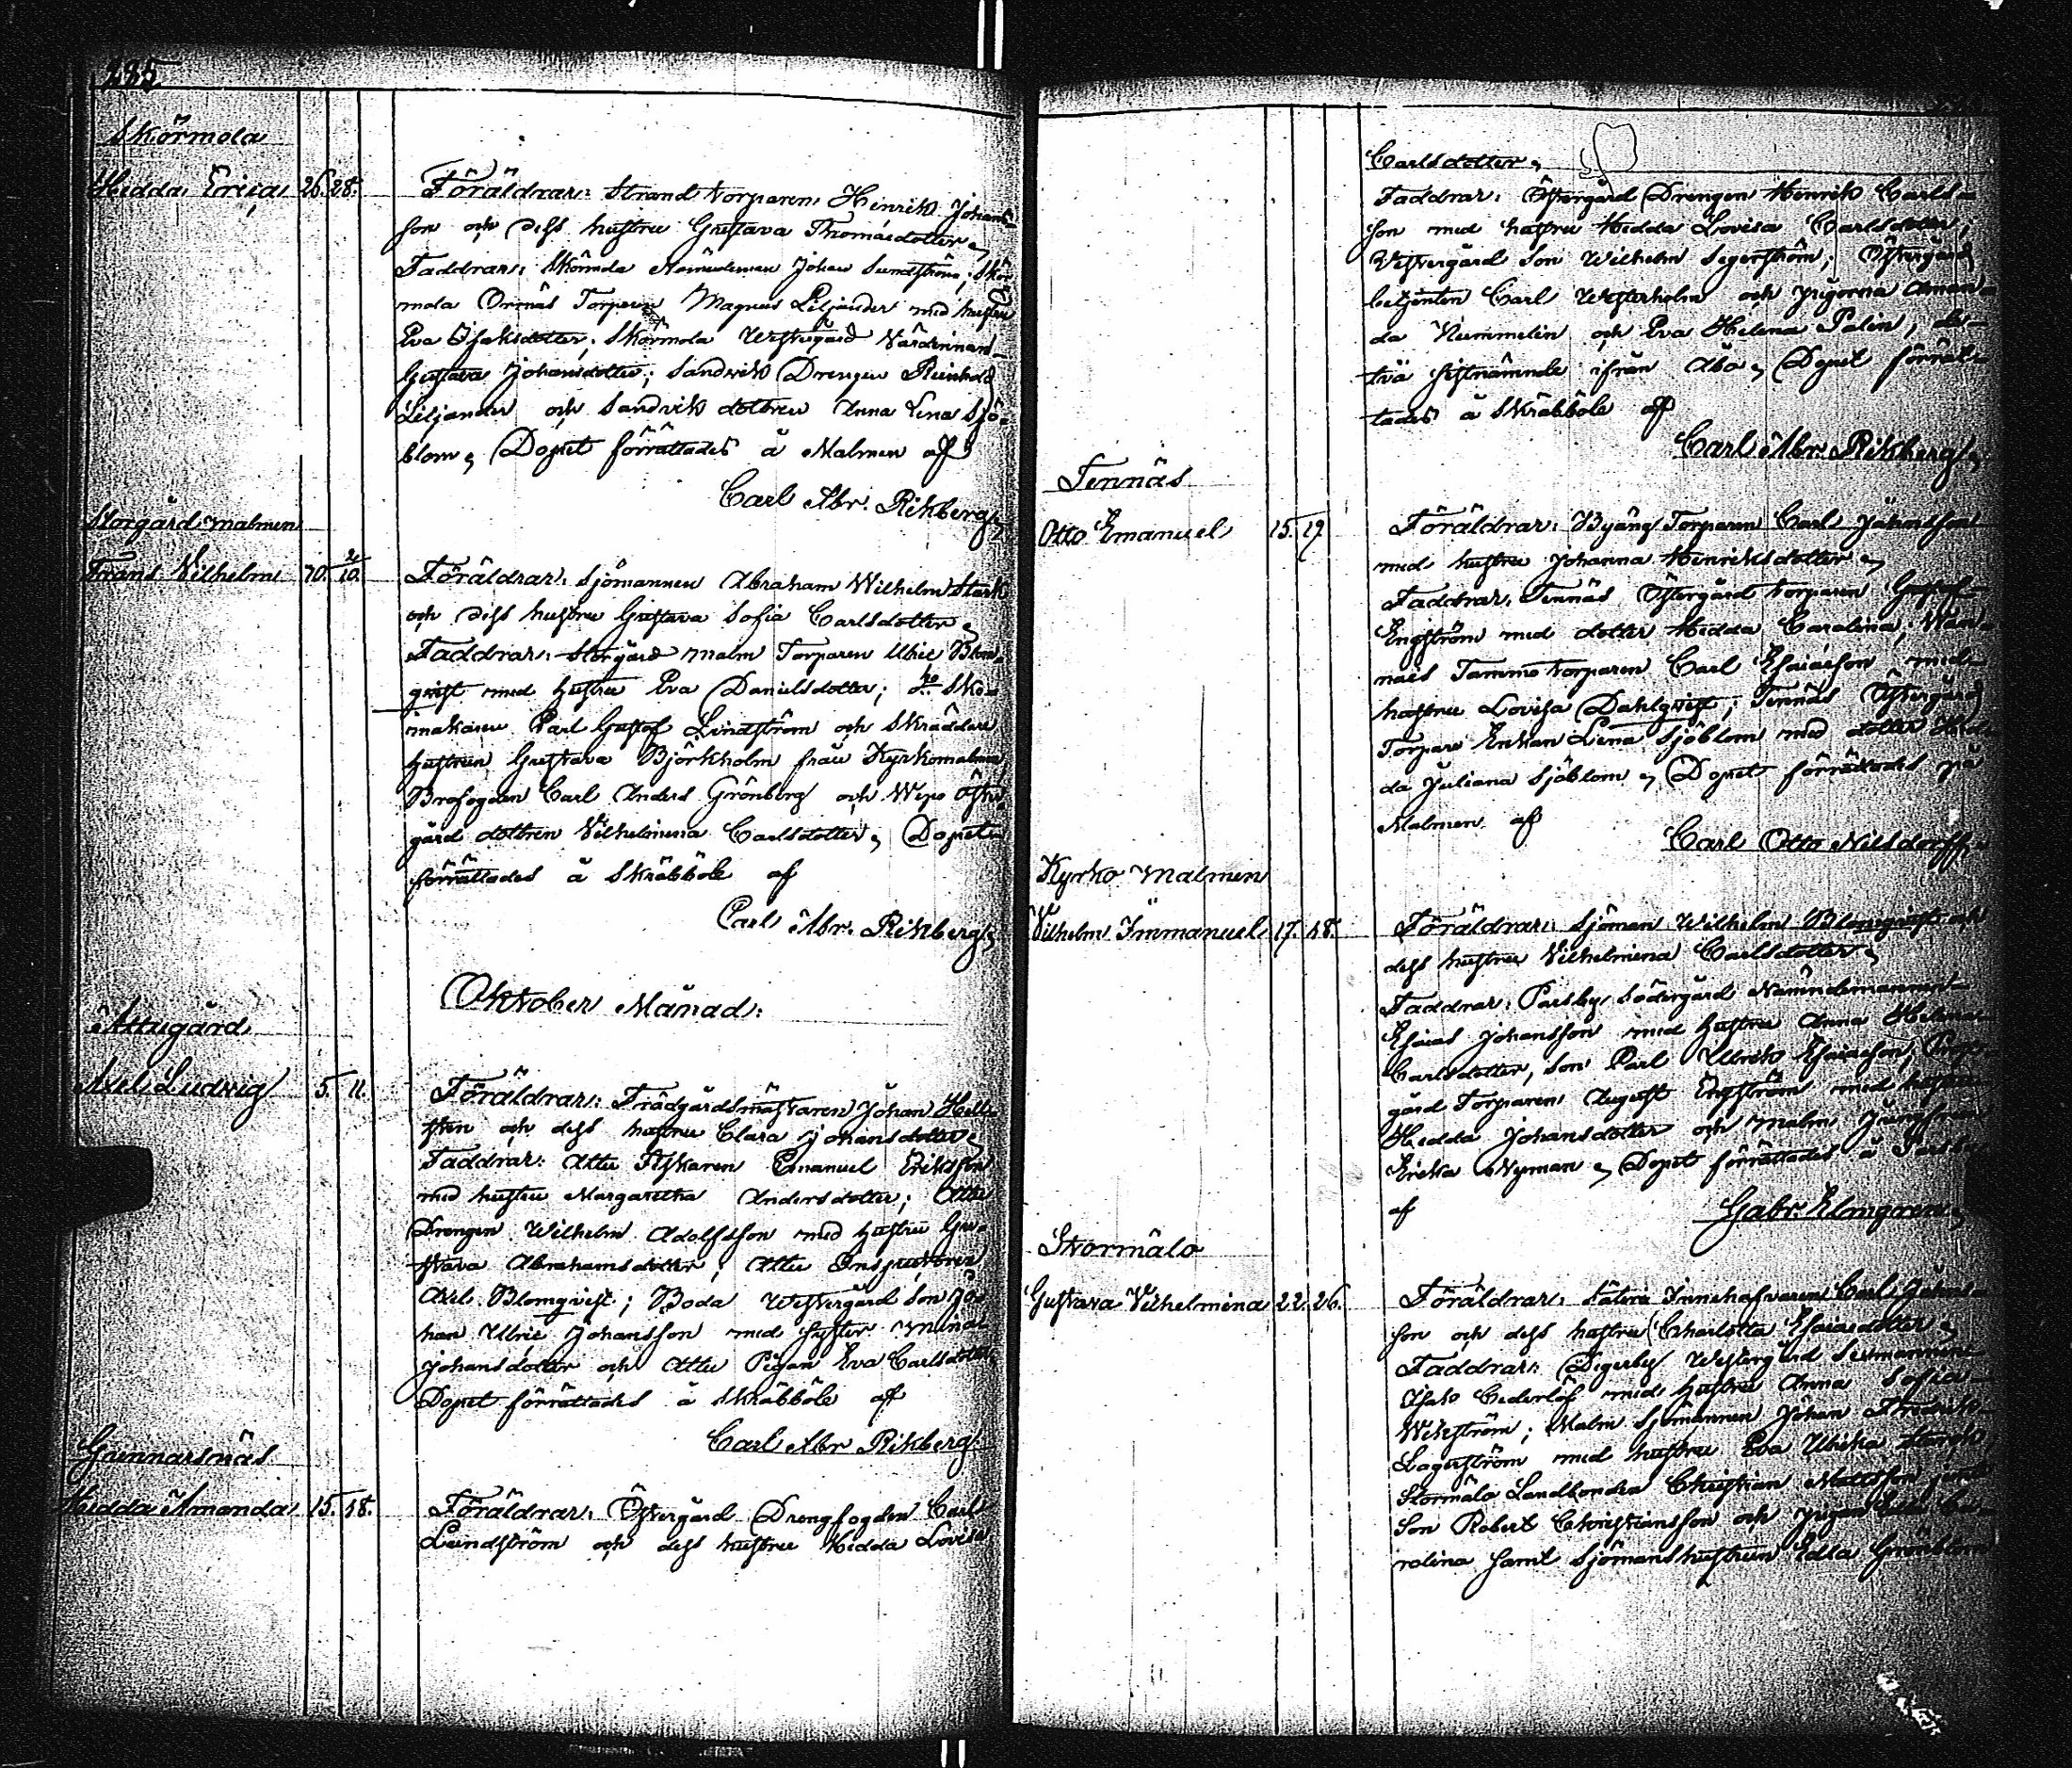 285
Skärmola
Hedda Erica 26. 28. Föräldrar: Strand torparen Henrik Johans-
son och dess hustru Gustava Thomasdotter,
Faddrar: Skärmola Nämndeman Johan Sundström; Skär-
mola Ornäs Torparen Magnus Liljander med hustru
Eva Isaksdotter; Skärmola Westergård Värdinnan
Gustava Johansdotter; Sandvik Drengen Reinhold
Liljander och Sandvik dottren Anna Lena Sjö-
blom, Dopet förrättades å Malmen af
Carl Abr. Rikberg,
Storgård malmen
Frans Vilhelm 20. 2/10. Föräldrar: Sjömannen Abraham Wilhelm Stark
och dess hustru Gustava Sofia Carlsdotter,
Faddrar: Storgård malm Torparen Ulric Blom-
qvist med hustru Eva Danielsdotter; d:o Sko-
makaren Carl Gustaf Lindström och Skräddare
hustrun Gustava Björkholm från Kyrkomalmen,
Brofogden Carl Anders Grönberg och Wepo Öster-
gård dottren Vilhelmina Carlsdotter, Dopet
förrättades å Skräbböle af
Carl Abr. Rikberg,
Oktober Månad:
Attugård
Axel Ludvig 5. 11. Föräldrar: Trädgårdsmästaren Johan Hell-
sten och dess hustru Clara Johansdotter,
Faddrar: Attu Fiskaren Emanuel Eriksson
med hustru Margaretha Andersdotter; Attu
Drengen Wilhelm Adolfsson med hustru Gu-
stava Abrahamsdotter; Attu Inspectoren
Axel Blomqvist; Boda Westergård Son Jo-
han Ulric Johansson med syster Mina
Johansdotter och Attu Pigan Eva Carlsdotter
Dopet förrättades å Skräbböle af
Carl Abr Rikberg,
Gunnarsnäs
Hedda Amanda 15. 18. Föräldrar: Östergård Drengfogden Carl
Lundström och dess hustru Hedda Lovisa
Carlsdotter,
Faddrar: Östergård Drengen Henrik Carls-
son med hustru Hedda Lovisa Carlsdotter;
Westergård Son Wilhelm Segerström; Östergård
betjenten Carl Westerholm och pigorna Aman-
da Nummelin och Eva Helena Palin, de
två sistnämnde ifrån Åbo, Dopet förrät-
tades å Skräbböle af
Carl Abr. Rikberg,
Tennäs
Otto Emanuel 15. 19. Föräldrar: Byäng Torparen Carl Johansson
med hustru Johanna Henriksdotter,
Faddrar: Tennäs Östergård torparen Gustaf
Engström med dotter Hedda Carolina;
Tammo torparen Carl Esaiasson med
hustru Lovisa Dahlqvist; Tennäs Östergård
Torpare Enkan Lena Sjöblom med dotter Hed-
da Juliana Sjöblom, Dopet förrättades på
Malmen af
Carl Otto Nilsdorff,
Kyrko malmen
Vilhelm Immanuel 17. 18. Föräldrar: Sjöman Wilhelm Blomqvist och
dess hustru Vilhelmina Carlsdotter,
Faddrar: Parsby Södergård Nämndemannen
Esaias Johansson med hustru Anna Helena
Carlsdotter, Son Karl Ulrik Esaiasson;
gård Torparen August Engström med hustru
Hedda Johansdotter och Malm Jungfrun
Ericka Nyman, Dopet förrättades å Parsby
af Gabr. Elmgren,
Stormälo
Gustava Vilhelmina 22. 26. Föräldrar: Säteri Innehafvaren Carl Johans-
son och dess hustru Charlotta Esaiasdotter,
Faddrar: Degerby Westergård Sexmannen
Isak Cederlöf med hustru Anna Sofia
Wikström; Malm Sjömannen Johan Fredrik
Lagerström med hustru Eva Ulrika
Stormälo Landbonden Christian Mattsson jemte
Son Robert Christiansson och pigan Ca-
rolina samt sjömanshustrun Edla Grönblom